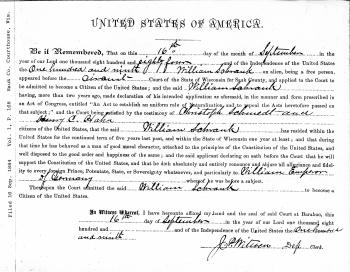 UNITED STATES OF AMERICA.
Be it Remembered, That on this 16th day of the month of September in the
year of our Lord one thousand eight hundred and eighty four and of the Independence of the United States
the One hundred and ninth William Schrank an alien, being a free person,
appeared before the Circuit Court of the State of Wisconsin for Sauk County, and applied to the Court
to be admitted to become a Citizen of the United States; and the said William Schrank
having, more than two years ago, made declaration of his intended application so entered, in the manner and form prescribed in
an Act of Congress, entitled "An Act to establish an uniform rule of Naturalization, and to repeal the Acts heretofore passed on
that subject;" and the Court being satisfied by the testimony of Christoph Schmidt and
Henry C.
citizens of the United States, that the said William Schrank has resided within the
United States for the continued term of five years last past, and within the State of Wisconsin one year at least; and that during
that time he has behaved as a man of good moral character, attached to the principles of the Constitution of the United States, and
well disposed to the good order and happiness of the same; and the said applicant declaring on oath before the Court that he will
support the Constitution of the United States, and that he doth absolutely and entirely renounce and abjure all allegiance and fidel-
ity to every foreign Prince, Potentate, State, or Sovereignty whatsoever, and particularly to William Emperor
of Germany whereof he was before a subject.
Thereupon the Court admitted the said William Schrank to become a
Citizen of the United States.
In Witness Whereof, I have hereunto affixed my hand and the seal of said Court at Baraboo, this
16th day of September in the year of our Lord one thousand eight
hundred and and of the Independence of the United States the One hundred
and ninth
Dep Clerk.
Filed 16 Sep. 1884 Vol. 1, P. 158 Sauk Co. Courthouse, Wis.